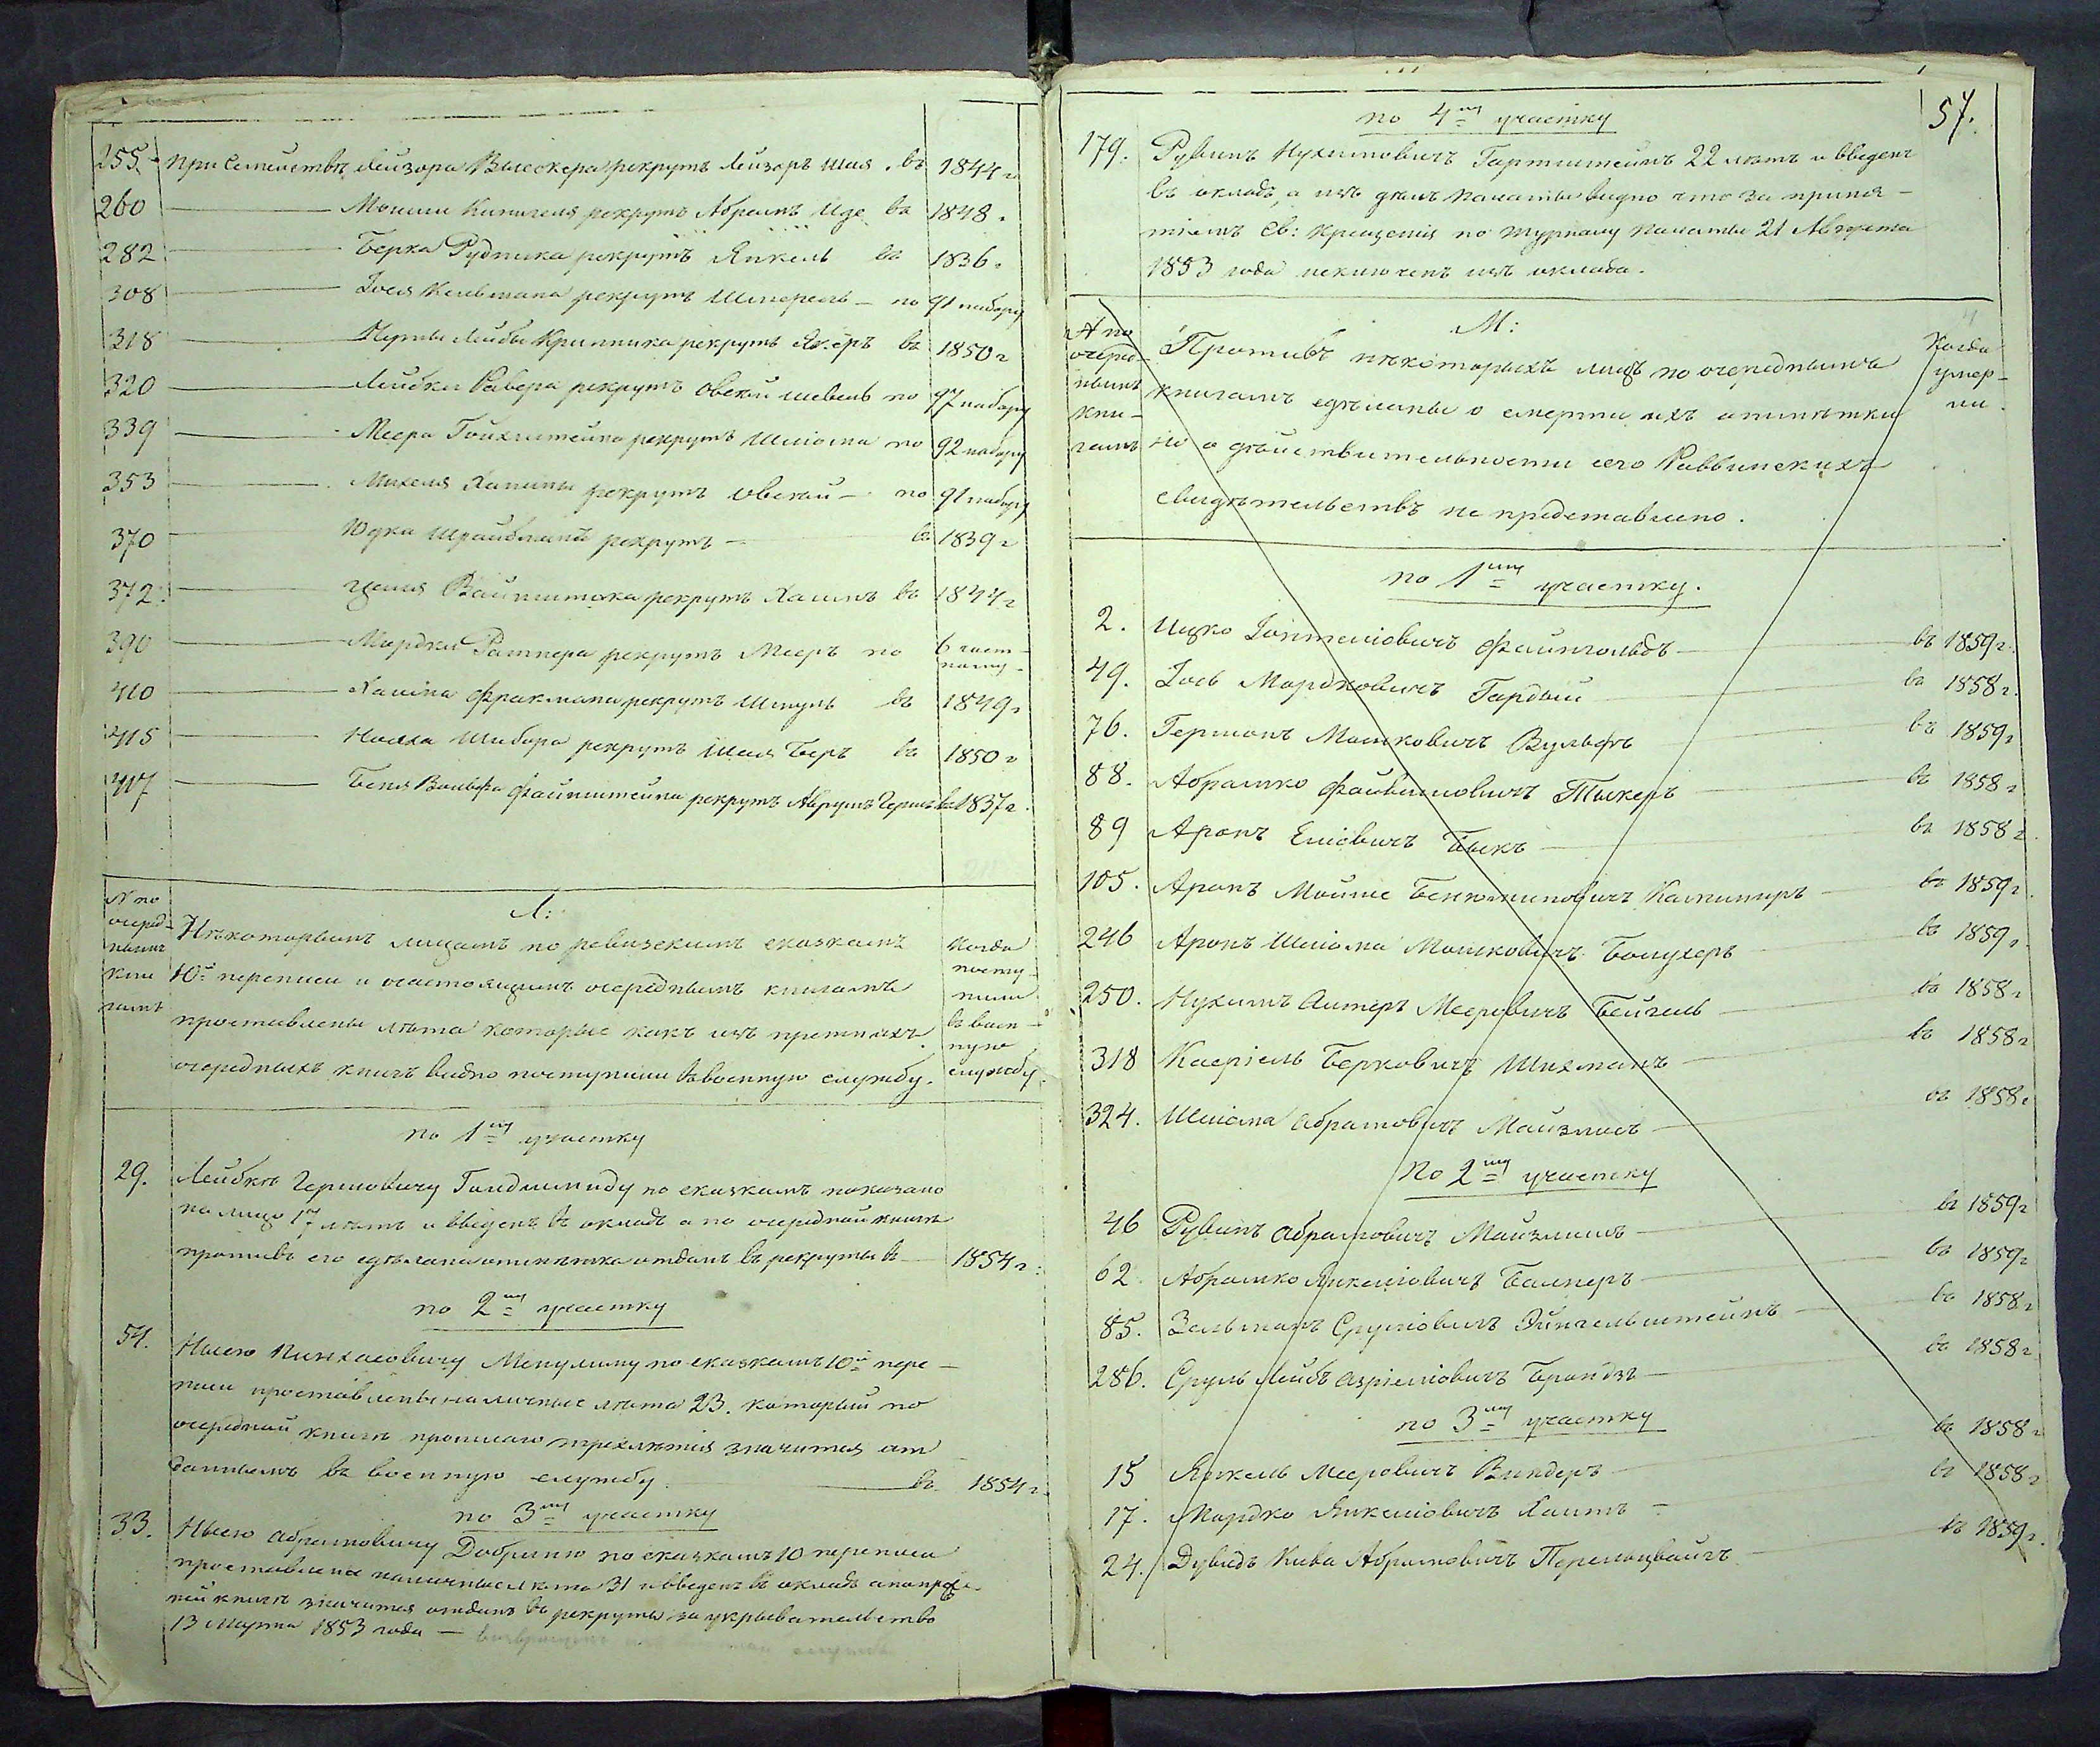 255. при Семействѣ Лейзора Вышкера рекрутъ Лейзоръ Шая . въ 1844 г
260 Мошки рекрутъ Абрамъ Иде въ 1848.
282 Берка Рудника рекрутъ Янкель въ 1836.
308 Іося Кельмана рекрутъ Шмерель - по 91 набору
318 Лейбы рекрутъ въ 1850 г
320 Лейбки рекрутъ Овсей Шевель по 97 набору
339 Меера рекрутъ Шліома по 92 набору
353 Михеля Ханины рекрутъ Овсей - по 91 набору
370 Юдка рекрутъ - въ 1839 г
372. рекрутъ Хаимъ въ 1844 г
390 Мордки рекрутъ Мееръ по 6 част-
ному.
410 Хаима Фракмана рекрутъ Шмуль въ 1849 г
415 рекрутъ Шая Беръ въ 1850 г
417 Беня Вольфа Файнштейна рекрутъ Аврумъ Гершъ въ 1837 г.
N по
очеред-
нымъ
кни
гамъ
Л:
Нѣкоторымъ лицамъ по ревизскимъ сказкамъ
10й переписи и настоящимъ очереднымъ книгамъ
проставлены лѣта которые какъ изъ прежнихъ
очередныхъ книгъ видно поступили въ военную службу.
Когда
посту-
пили
въ воен-
ную
службу.
по 1му участку
29. Лейбкѣ Гершовичу Гольдшмиду по сказкамъ показано
на лицо 17 лѣтъ и введенъ въ окладъ а по очередной книгѣ
противъ его сдѣлана отмѣтка отданъ въ рекруты въ 1854 г.
по 2му участку
54. Нисею Пинхасовичу по сказкамъ 10й пере-
писи проставлены наличные лѣта 23. который по
очередной книгѣ прошлаго трехлѣтія значится от
даннымъ въ военную службу въ 1854 г.
по 3му участку
33. Нисею Абрамовичу по сказкамъ 10 переписи
проставлены наличные лѣта 31 и введенъ въ окладъ а по
книгѣ значится отданъ въ рекруты за укрывательство
13 Марта 1853 года -
57.
по 4му участку
179. Рувинъ Нухимовичъ Гартштейнъ 22 лѣтъ и введенъ
въ окладъ, а изъ дѣлъ палаты видно что за приня-
тіемъ Св: Крещенія по журналу палаты 21 Августа
1853 года исключенъ изъ оклада.
N по
очеред-
нымъ
кни-
гамъ
М:
Противъ нѣкоторыхъ лицъ по очереднымъ
книгамъ сдѣланы о смерти ихъ отмѣтки
но о дѣйствительности сего Раввинскихъ
свидѣтельствъ не представлено.
Когда
умер-
ли.
по 1му участку.
2. Ицко Файнгольдъ въ 1859 г.
49. Іось Мордковичъ Гардый въ 1858 г.
76. Германъ Мошковичъ Вульфъ въ 1859 г
88. Абрамко Файвишовичъ въ 1858 г
89 Аронъ Еліовичъ Быкъ въ 1858 г.
105. Аронъ Мойше Бенюминовичъ въ 1859 г.
246 Аронъ Шліома Мошковичъ въ 1859 г.
250. Нухимъ Алтеръ Мееровичъ Бейгель въ 1858 г
318 Касріель Берковичъ Шихманъ въ 1858 г
324. Шліома Абрамовичъ Майзлисъ въ 1858 г
по 2му участку
46 Рувинъ Абрамовичъ Майзлишъ въ 1859 г
62. Абрамко Янкеліовичъ въ 1859 г
85. Зельманъ Сруліовичъ въ 1858 г
286. Сруль Лейбъ Азріеліовичъ Брондзъ въ 1858 г.
по 3му участку
15 Янкель Мееровичъ Виндеръ въ 1858 г
17. Мордко Янкеліовичъ въ 1858 г
24. Дувидъ Кива Абрамовичъ Перельцвайгъ въ 1859 г.